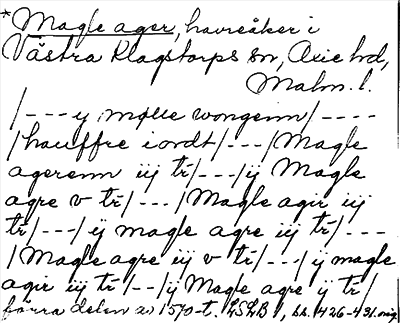 *Magle ager, havreåker i
Västra Klagstorps sn, Oxie hd,
Malm. l.
/---y mølle wongenn/----
/hauffre iordt/---/Magle
agerenn iij tr/---/ij Magle
agre v tr/---/Magle agir iij
tr/---/ij magle agre iij tr/---
/Magle agre iij v tr/---/ij magle
agir iij tr/--/ij Magle agre ij tr/
förra delen av 1570-t, LSLB, bl. 426-431. orig.